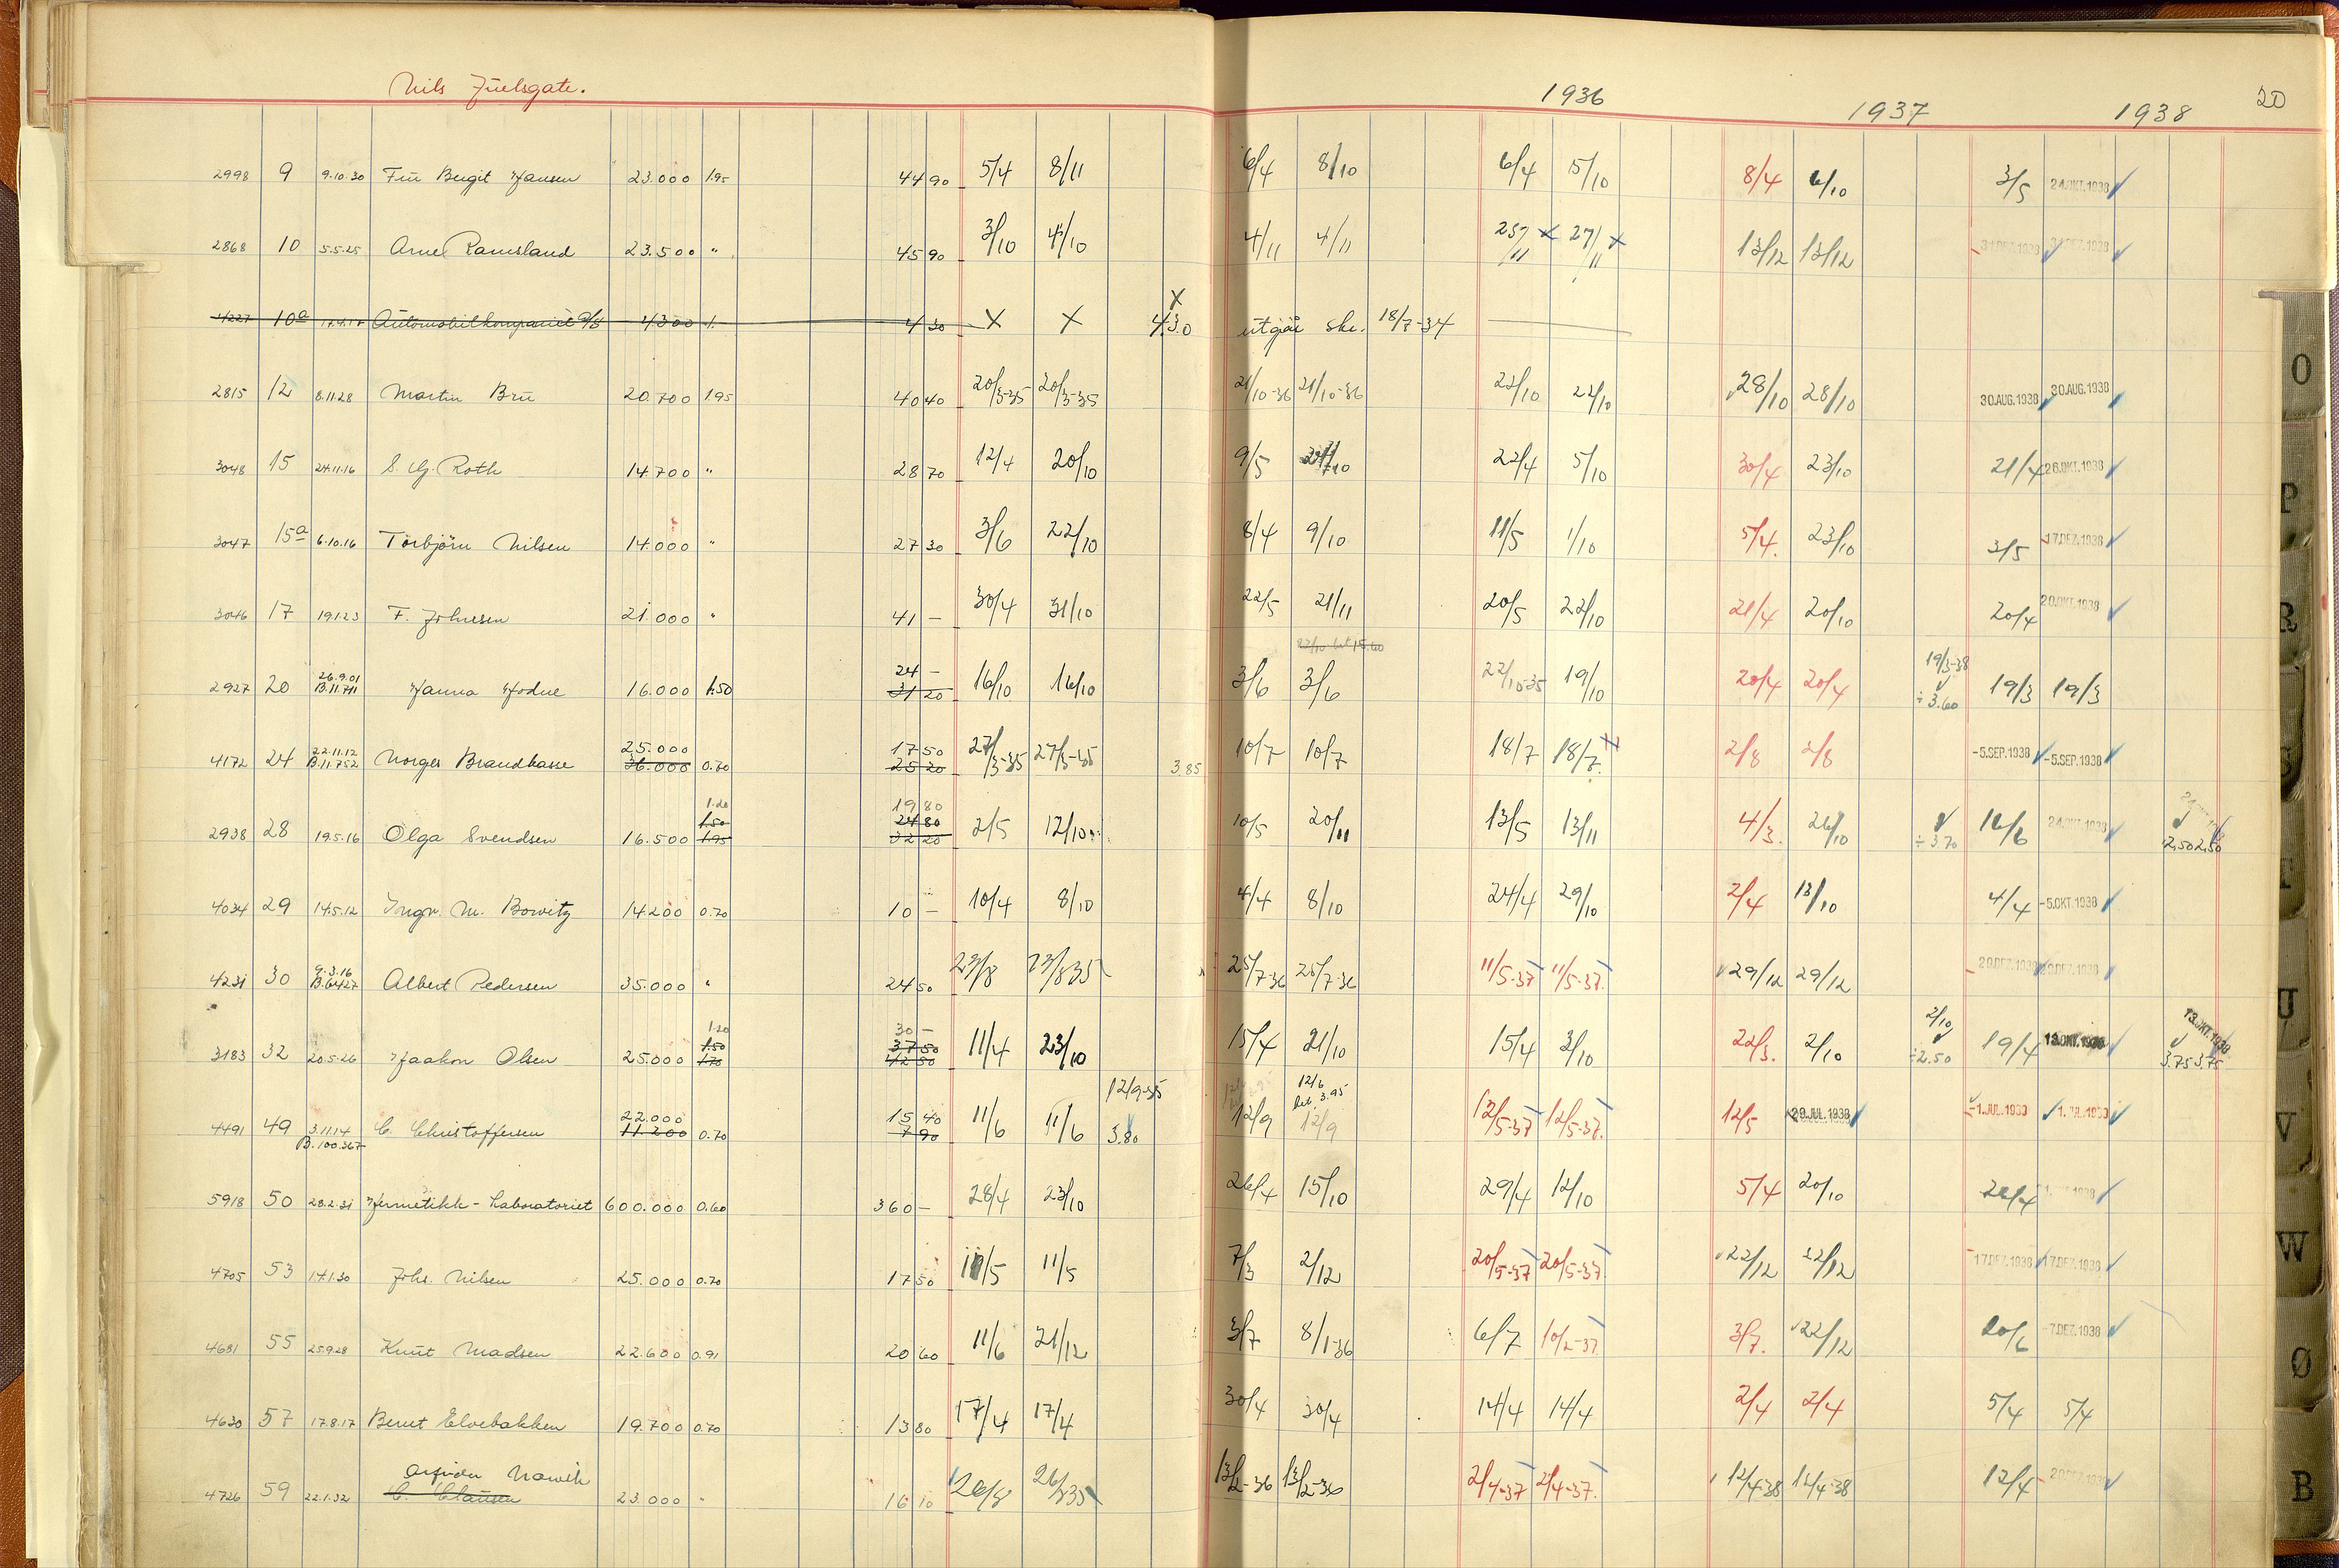 Nils Juelsgate.
1936 1937 1938 20
2998 9 9.10.30 Fru Bergit Hansen 23.000 1.95 44 90 5/4 8/11 6/4 8/10 6/4 15/10 8/4 6/10 3/5 24.OKT.1938
2868 10 5.5.25 Arne Ramsland 23.500 " 45 90 3/10 4/10 4/11 4/11 25/11 x 27/11 x 13/12 13/12 31.DEZ.1938 31.DEZ.1938
4227 10a 17.4.17 Automobilkompaniet A/S 4300 1. 4 30 X X X 4.30 utgår ske. 18/7-34
2815 12 8.11.28 Martin Bru 20.700 1.95 40 40 20/3-35 20/3-35 21/10-36 21/10-36 22/10 22/10 28/10 28/10 30.AUG.1938 30.AUG.1938
3048 15 24.11.16 S. G. Roth 14.700 " 28 70 12/4 20/10 9/5 22/4 5/10 30/4 23/10 21/4 26.OKT.1938
3047 15a 6.10.16 Torbjörn Nilsen 14.000 " 27 30 3/6 22/10 8/4 9/10 11/5 1/10 5/4. 23/10 3/5 17.DEZ.1938
3046 17 19.1.23 F. Johnesen 21.000 " 41 - 30/4 31/10 22/5 21/11 20/5 22/10 21/4 20/10 20/4 20.OKT.1938
22/10 bet 15.60 19/3-38
26.9.01 24 -
2927 20 B.11.711 Hanna Hodne 16.000 1.50 31 20 16/10 16/10 3/6 3/6 22/10-35 19/10 20/4 20/4 ÷3.60 19/3 19/3
22.11.12 25.000 17 50
4172 24 B.11.752 Norges Brandkasse 36.000 0.70 25 20 27/3-35 27/3-35 3.85 10/7 10/7 18/7 18/7 2/8 2/8 -5.SEP.1938 -5.SEP.1938
1.20 19 80
1.50 24 80
2938 28 19.5.16 Olga Svendsen 16.500 1.95 32 20 2/5 12/10 10/5 20/11 13/5 13/11 4/3. 26/10 ÷3.70 16/6 24.OKT.1938 2.50 2.50
4034 29 14.5.12 Ingv. M. Bowitz 14.200 0.70 10 - 10/4 8/10 4/4 8/10 24/4 29/10 2/4 13/10 4/4 -5.OKT.1938
9.3.16
4231 30 B.6427 Albert Pedersen 35.000 " 24 50 23/8 23/8 35 25/7-36 25/7-36 11/5-37 11/5-37. 29/12 29/12 29.DEZ.1938 29.DEZ.1938
1.20 30 - 2/10 13.OKT.1938
1.50 37 50
3183 32 20.5.26 Haakon Olsen 25000 1.70 42 50 11/4 23/10 15/4 21/10 15/4 3/10 22/3. 2/10 ÷2.50 19/4 13.OKT.1938 3.75 3.75
12/9-35 12/6 bet. 3.95
22.000 15 40
4491 49 3.11.14 C. Christoffersen 11.200 0.70 7 90 11/6 11/6 3.80 12/9 12/9 12/5-37 12/5-37. 12/5 29.JUL.1938 -1.JUL.1939 -1.JUL.1939
B.100.367
5918 50 28.2.31 Hermetikk-Laboratoriet 600.000 0.60 360 - 28/4 23/10 26/4 15/10 29/4 12/10 5/4 20/10 26/4
4705 53 14.1.30 Johs. Nilsen 25.000 0.70 17 50 11/5 11/5 7/3 2/12 20/5-37 20/5-37. 22/12 22/12 17.DEZ.1938 17.DEZ.1938
4681 55 25.9.28 Knut Madsen 22.600 0.91 20 60 11/6 21/12 3/7 8/1-36 6/7 10/2-37. 3/7. 22/12 20/6 -7.DEZ.1938
4630 57 17.8.17 Berent Elvebakken 19.700 0.70 13 80 17/4 17/4 30/4 30/4 14/4 14/4 2/4 2/4 5/4 5/4
Arfinder Narvik
4726 59 22.1.32 C. Clausen 23.000 " 16 10 26/8 26/8 35 13/2-36 13/2-36 2/4-37 2/4-37. 12/4-38 12/4-38 12/4
O
P
R
S
T
U
V
W
Ø
B